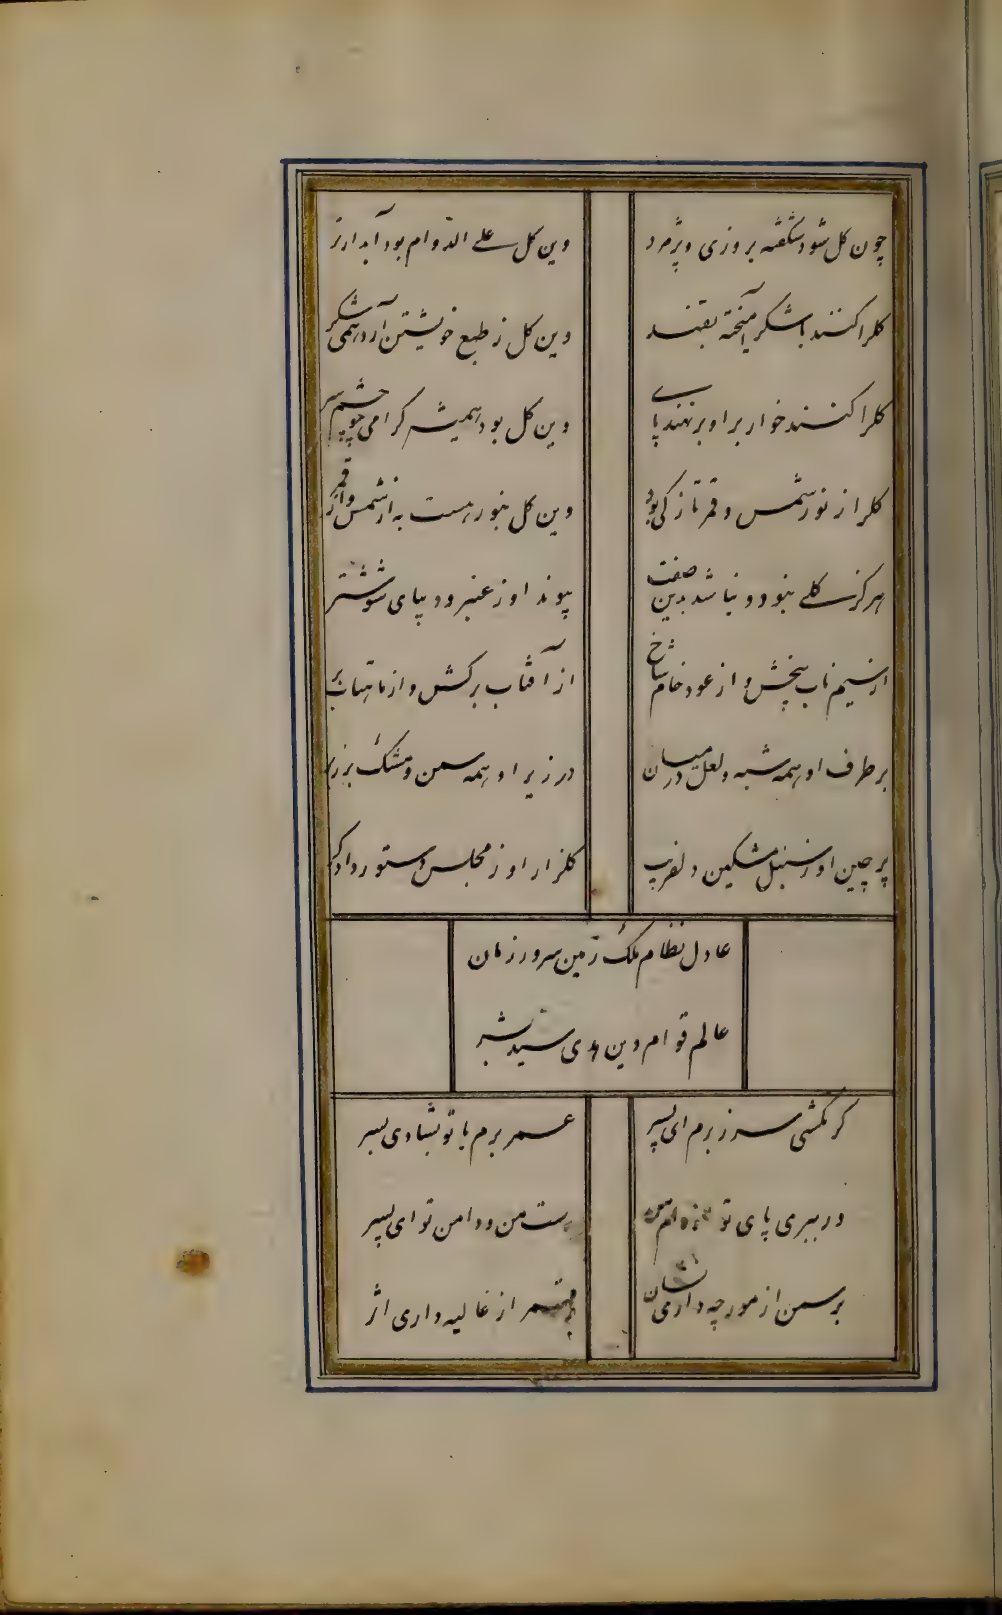 چون کل شود شکفته بروزی و پژمرد
وین کل علی الدوام بود آبدارتر
کلرا کنند با شکر آمیخته بقند
وین کل ز طبع خویشتن آرد همی شکر
کلرا کنند خوار بر او بر نهند پای
وین کل بود همیشه کرامی چو چشم سر
کلرا از نور شمس و قمر تازکی بود
وین کل بنور هست به از شمس و از قمر
هرکز کلی نبود و نباشد بدین صفت
پیوند او ز عنبر و دیبای شوشتر
از سیم ناب بیخش و از عود خام شاخ
از آفتاب برکش و از ماهتاب بر
بر طرف او همه شبه و لعل در میان
در زیر او همه سمن و مشک بر زبر
پرچین او ز سنبل مشکین دلفریب
کلزار او ز مجلس دستور دادکر
عادل نظام ملک زمین سرور زمان
عالم قوام دین هدی سید بشر
کر نکشی سر ز برم ای پسر
عمر برم با تو بشادی بسر
ور ببری پای تو
دست من و دامن تو ای پسر
بر سمن از مورچه داری نشان
بر قمر از غالیه داری اثر